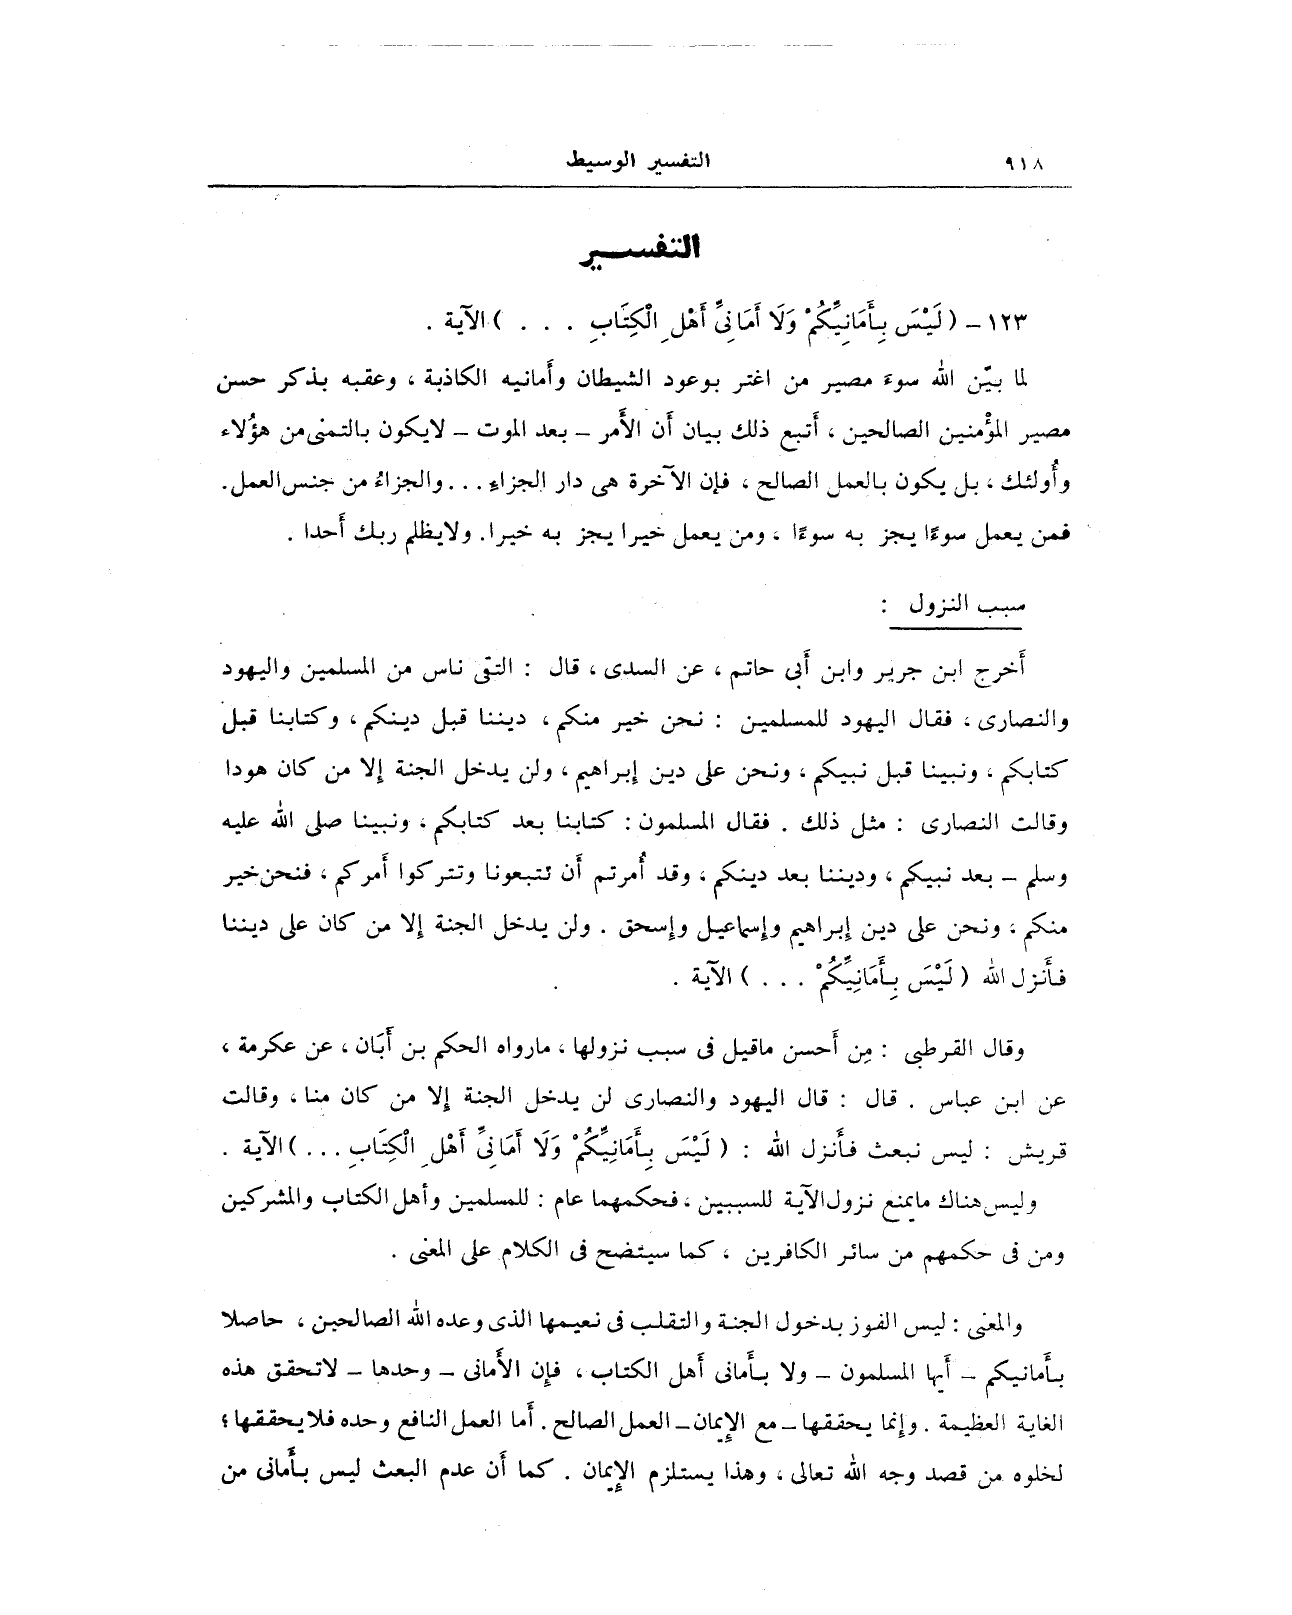 ٩١٨
التفسير الوسيط
التفسـير
١٢٣ – ( لَيْسَ بِأَمَانِيِّكُمْ وَلَا أَمَانِيِّ أَهْلِ الْكِتَابِ . . . ) الآية .
لما بيّن الله سوءَ مصير من اغتر بوعود الشيطان وأمانيه الكاذبة ، وعقبه بذكر حسن
مصير المؤْمنين الصالحين ، أَتبع ذلك بيان أن الأَمر – بعد الموت – لايكون بالتمنى من هؤُلاء
وأُولئك ، بل يكون بالعمل الصالح ، فإن الآخرة هى دار الجزاءِ . . . والجزاءُ من جنس العمل.
فمن يعمل سوءًا يجز به سوءًا ، ومن يعمل خيرا يجز به خيرا. ولايظلم ربك أَحدا .
سبب النزول :
أَخرج ابن جرير وابن أَبى حاتم ، عن السدى ، قال : التقى ناس من المسلمين واليهود
والنصارى ، فقال اليهود للمسلمين : نحن خير منكم ، ديننا قبل دينكم ، وكتابنا قبل
كتابكم ، ونبينا قبل نبيكم ، ونحن على دين إبراهيم ، ولن يدخل الجنة إلا من كان هودا
وقالت النصارى : مثل ذلك . فقال المسلمون : كتابنا بعد كتابكم ، ونبينا صلى الله عليه
وسلم – بعد نبيكم ، وديننا بعد دينكم ، وقد أُمرتم أَن تتبعونا وتتركوا أَمركم ، فنحن خير
منكم ، ونحن على دين إبراهيم وإسماعيل وإسحق . ولن يدخل الجنة إلا من كان على ديننا
فأَنزل الله ( لَيْسَ بِأَمَانِيِّكُمْ . . . ) الآية .
وقال القرطبى : مِن أَحسن ماقيل فى سبب نزولها ، مارواه الحكم بن أَبَان ، عن عكرمة ،
عن ابن عباس . قال : قال اليهود والنصارى لن يدخل الجنة إلا من كان منا ، وقالت
قريش : ليس نبعث فأَنزل الله : ( لَيْسَ بِأَمَانِيِّكُمْ وَلَا أَمَانِيِّ أَهْلِ الْكِتَابِ . . . ) الآية .
وليس هناك مايمنع نزول الآية للسببين ، فحكمهما عام : للمسلمين وأهل الكتاب والمشركين
ومن فى حكمهم من سائر الكافرين ، كما سيتضح فى الكلام على المعنى .
والمعنى : ليس الفوز بدخول الجنة والتقلب فى نعيمها الذى وعده الله الصالحين ، حاصلا
بأَمانيكم – أَيها المسلمون – ولا بأَمانى أهل الكتاب ، فإن الأَمانى – وحدها – لاتحقق هذه
الغاية العظيمة . وإنما يحققها – مع الإيمان – العمل الصالح . أما العمل النافع وحده فلا يحققها ؛
لخلوه من قصد وجه الله تعالى ، وهذا يستلزم الإيمان . كما أَن عدم البعث ليس بأَمانى من